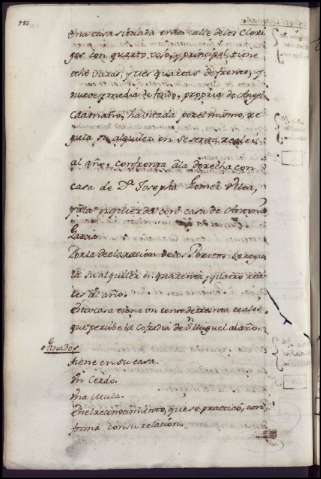 Una casa situada en la calle de los Clerigos
con quarto vajo, y principal, tiene
ocho varas, y tres quartas de frente, y
nueve y media de fondo, propria de Angel
Caamaño, havitada por el mismo, re
gula su alquiler en sesenta reales
al año, confronta a la derecha con
casa de Dª Josepha Gomez
y a la izquierda con casa de Antonio
Garcia.
Por la declaración de los Peritos le regu
la su alquiler en quarenta, y quatro rea
les al año.
Esta casa tiene un censo de treinta reales
que percibe la Cofradia de Sn Miguel al año.
Ganados
Tiene en su casa.
Un Cerdo.
Una Mula.
En el reconocimiento, que se practicó, con
firma con su relación.